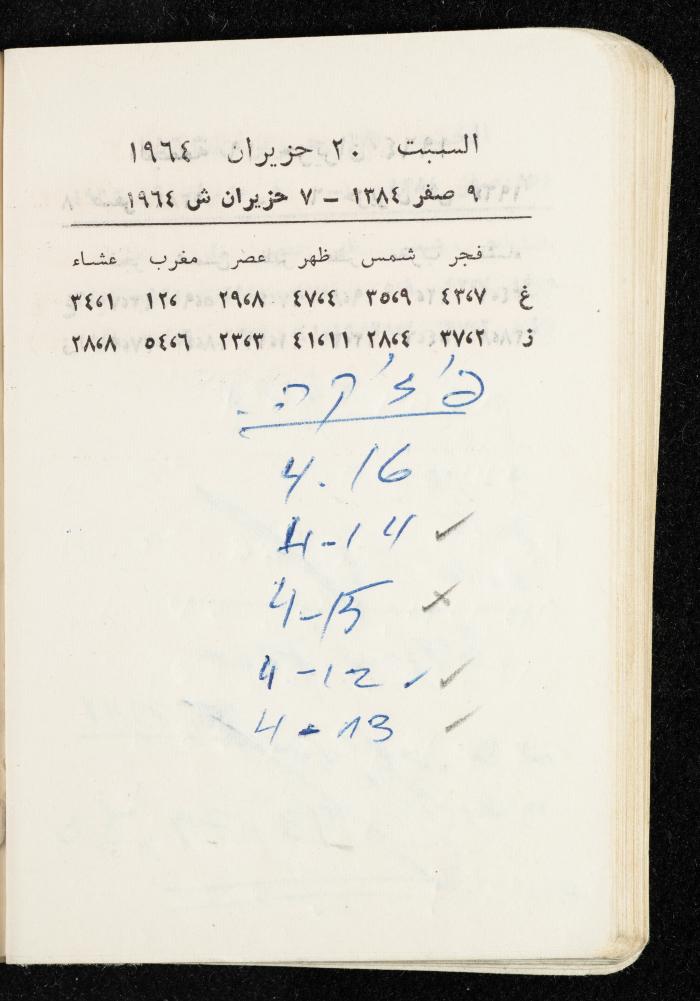 السبت ٢٠ حزيران ١٩٦٤
٩ صفر ١٣٨٤ – ٧ حزيران ش ١٩٦٤
فجر شمس ظهر عصر مغرب عشاء
غ ٤٣،٧ ٣٥،٩ ٤٧،٤ ٢٩،٨ ١٢، ٣٤،١
ز ٣٧،٢ ٢٨،٤ ٤١،١١ ٢٣،٣ ٥٤،٦ ٢٨،٨
4.16
4-14 ✓
4-15 ×
4-12 ✓
4-13 ✓